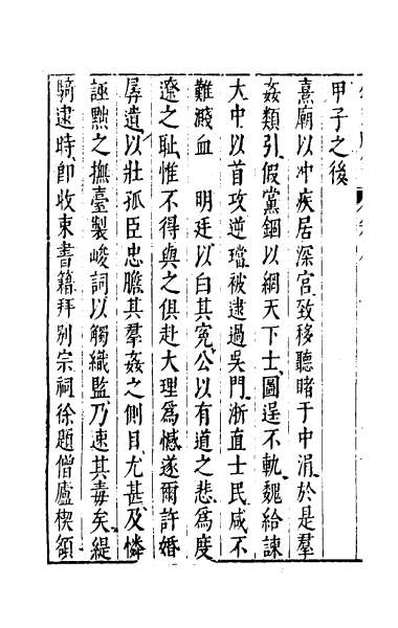 甲子之後
熹廟以冲疾居深宮致移聽睹于中涓於是羣
姦類引假黨錮以網天下士圖逞不軌魏給諫
大中以首攻逆璫被逮過吳門浙直士民咸不
難濺血　明廷以白其冤公以有道之悲爲度
遼之耻惟不得與之俱赴大理爲憾遂爾許婚
孱遺以壯孤臣忠膽其羣姦之側目尤甚及憐
誣黜之撫臺製峻詞以觸織監乃速其毒矣緹
騎逮時卽收束書籍拜別宗祠徐題僧廬楔額